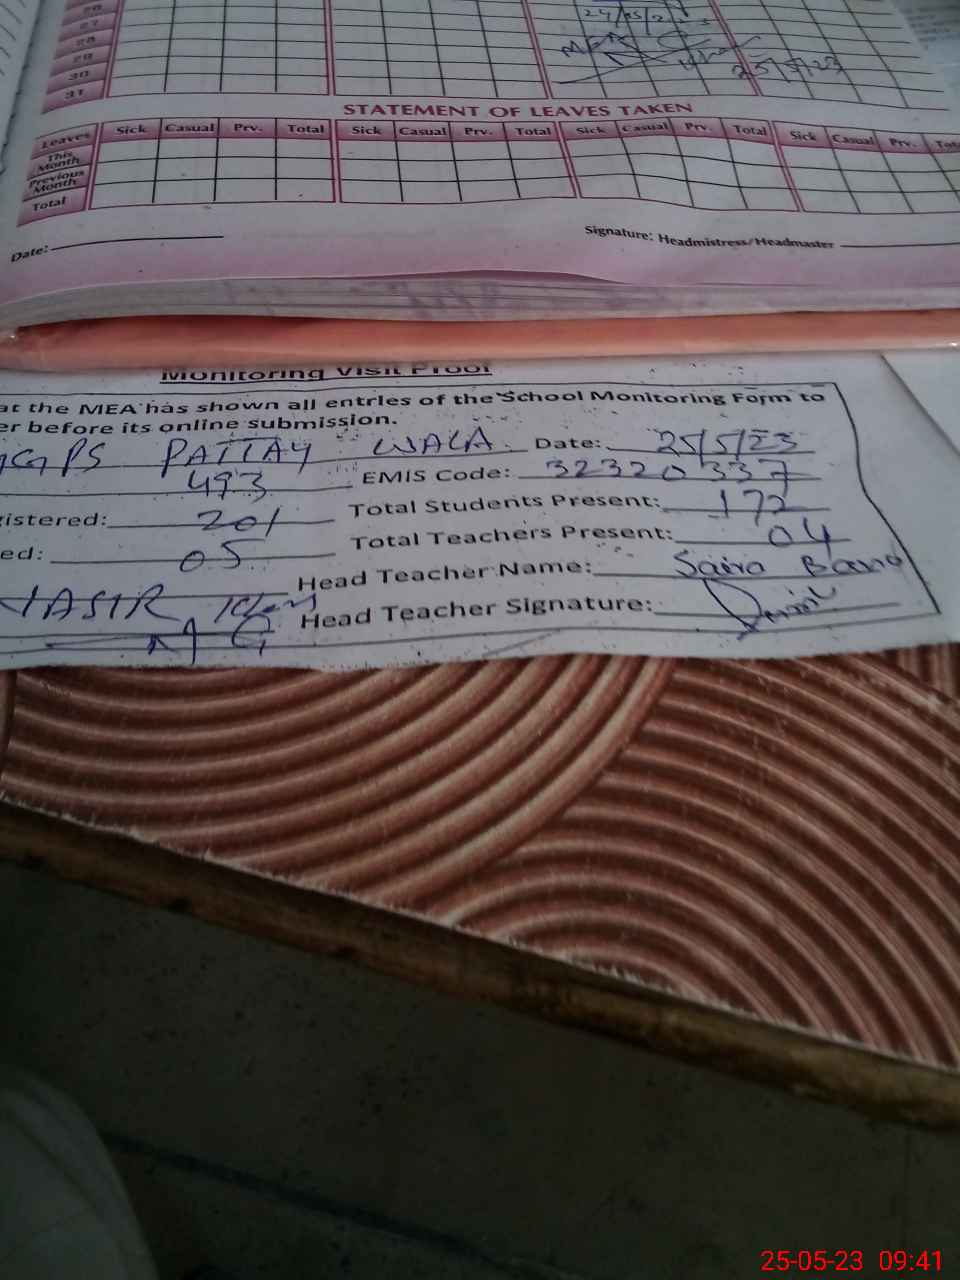 26
27
28
29
30
31
24/05/23
25/5/23
STATEMENT OF LEAVES TAKEN
Leaves Sick Casual Prv. Total Sick Casual Prv. Total Sick Casual Prv. Total Sick Casual Prv. Tota
This Month
Previous Month
Total
Date: Signature: Headmistress/Headmaster
Monitoring Visit Proof
at the MEA has shown all entries of the School Monitoring Form to
er before its online submission.
GGPS PATTAY WALA Date: 25/5/23
493 EMIS Code: 32320337
istered: 201 Total Students Present: 172
ed: 05 Total Teachers Present: 04
Head Teacher Name: Saira Bano
YASIR Khan Head Teacher Signature:
25-05-23 09:41